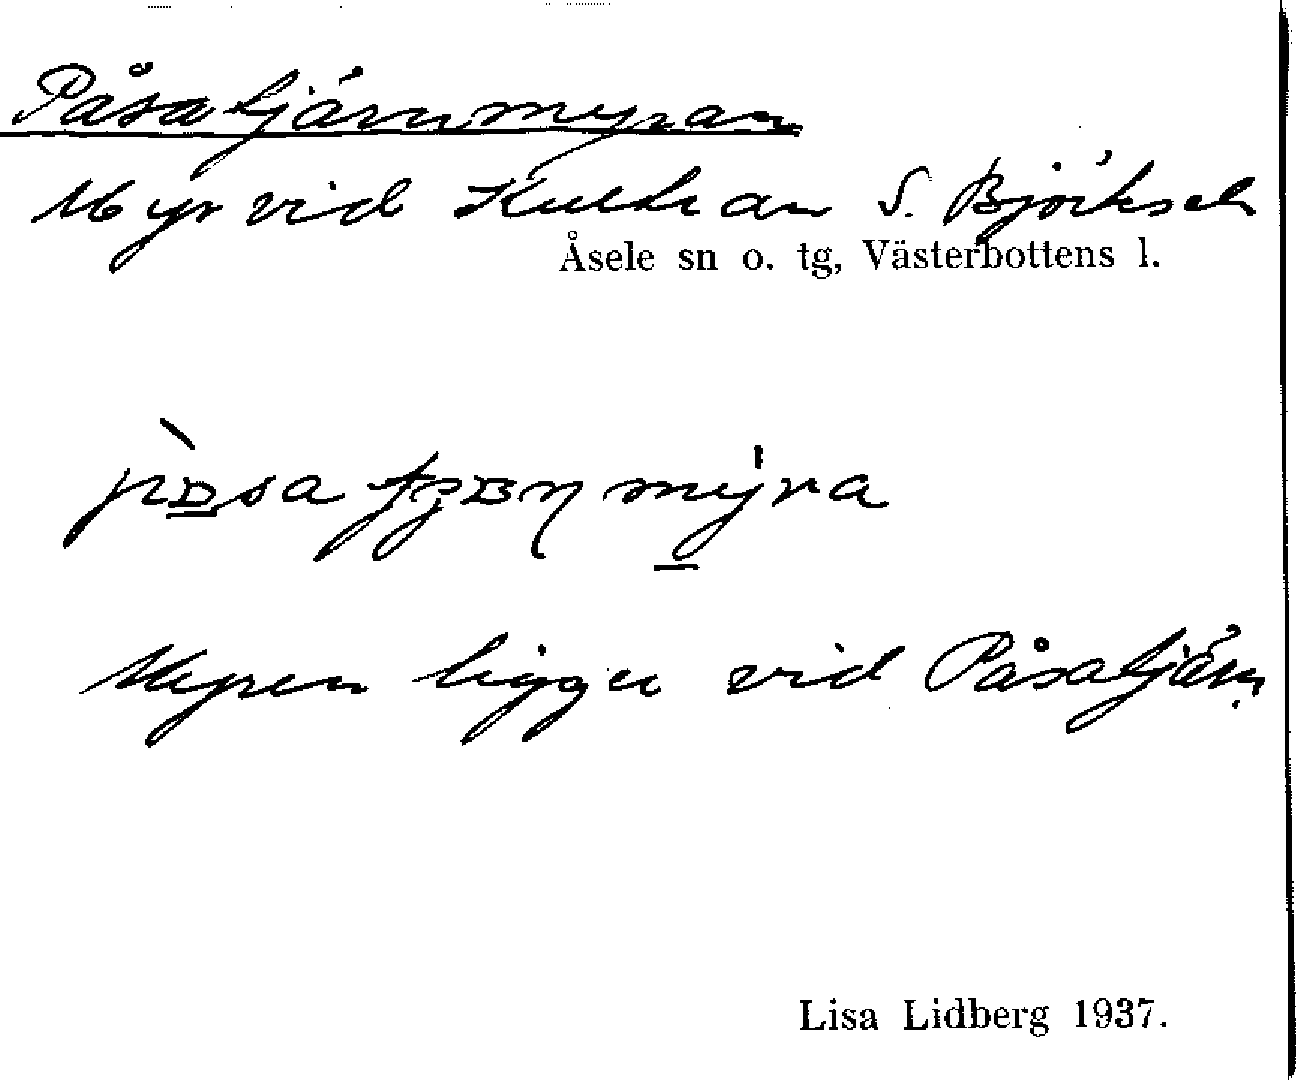 Påsatjärnmyran
Myr vid Kullran S. Björksele
Åsele sn o. tg, Västerbottens l.
Myren ligger vid Påsatjärn.
Lisa Lidberg 1937.